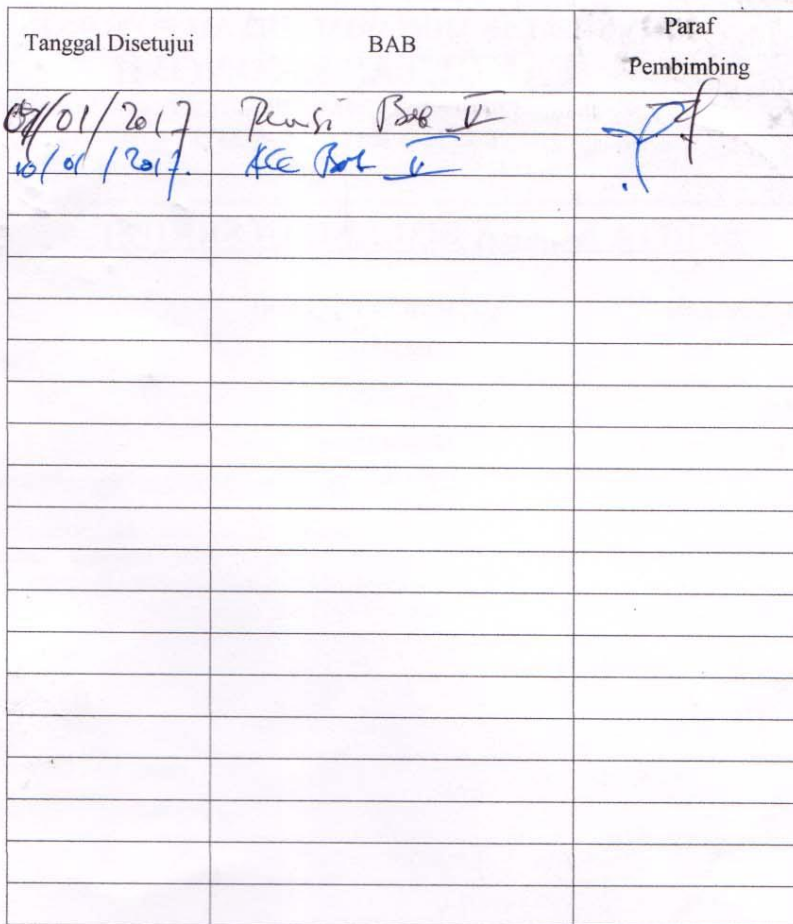 Tanggal Disetujui BAB Paraf Pembimbing
/01/2017 Revisi Bab V
10/01/2017. Acc Bab V